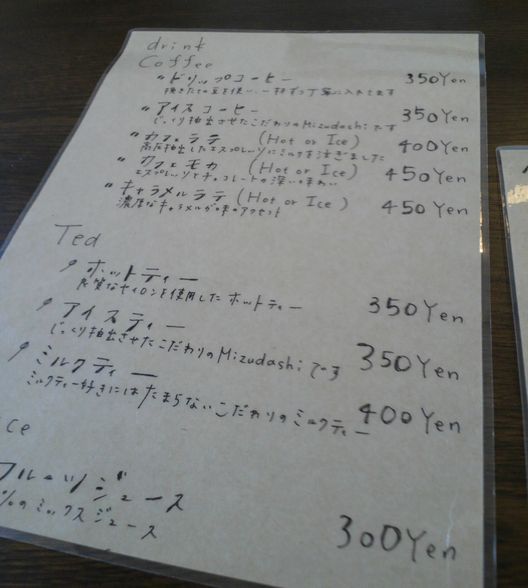 drink
Coffee
〃ドリップコーヒー 350Yen
挽きたての豆を使い、一杯ずつ丁寧に入れてます
〃アイスコーヒー 350Yen
じっくり抽出させたこだわりのMizudashiです
〃カフェラテ (Hot or Ice) 400Yen
高圧抽出したエスプレッソにミルクを注ぎました
〃カフェモカ (Hot or Ice) 450Yen
エスプレッソとチョコレートの深い味わい
〃キャラメルラテ (Hot or Ice) 450Yen
濃厚なキャラメルが味のアクセント
Tea
ホットティー 350Yen
良質なセイロンを使用したホットティー
アイスティー 350Yen
じっくり抽出させたこだわりのMizudashiです
ミルクティー 400Yen
ミルクティー好きにはたまらないこだわりのミルクティー
ice
フルーツジュース 300Yen
%のミックスジュース